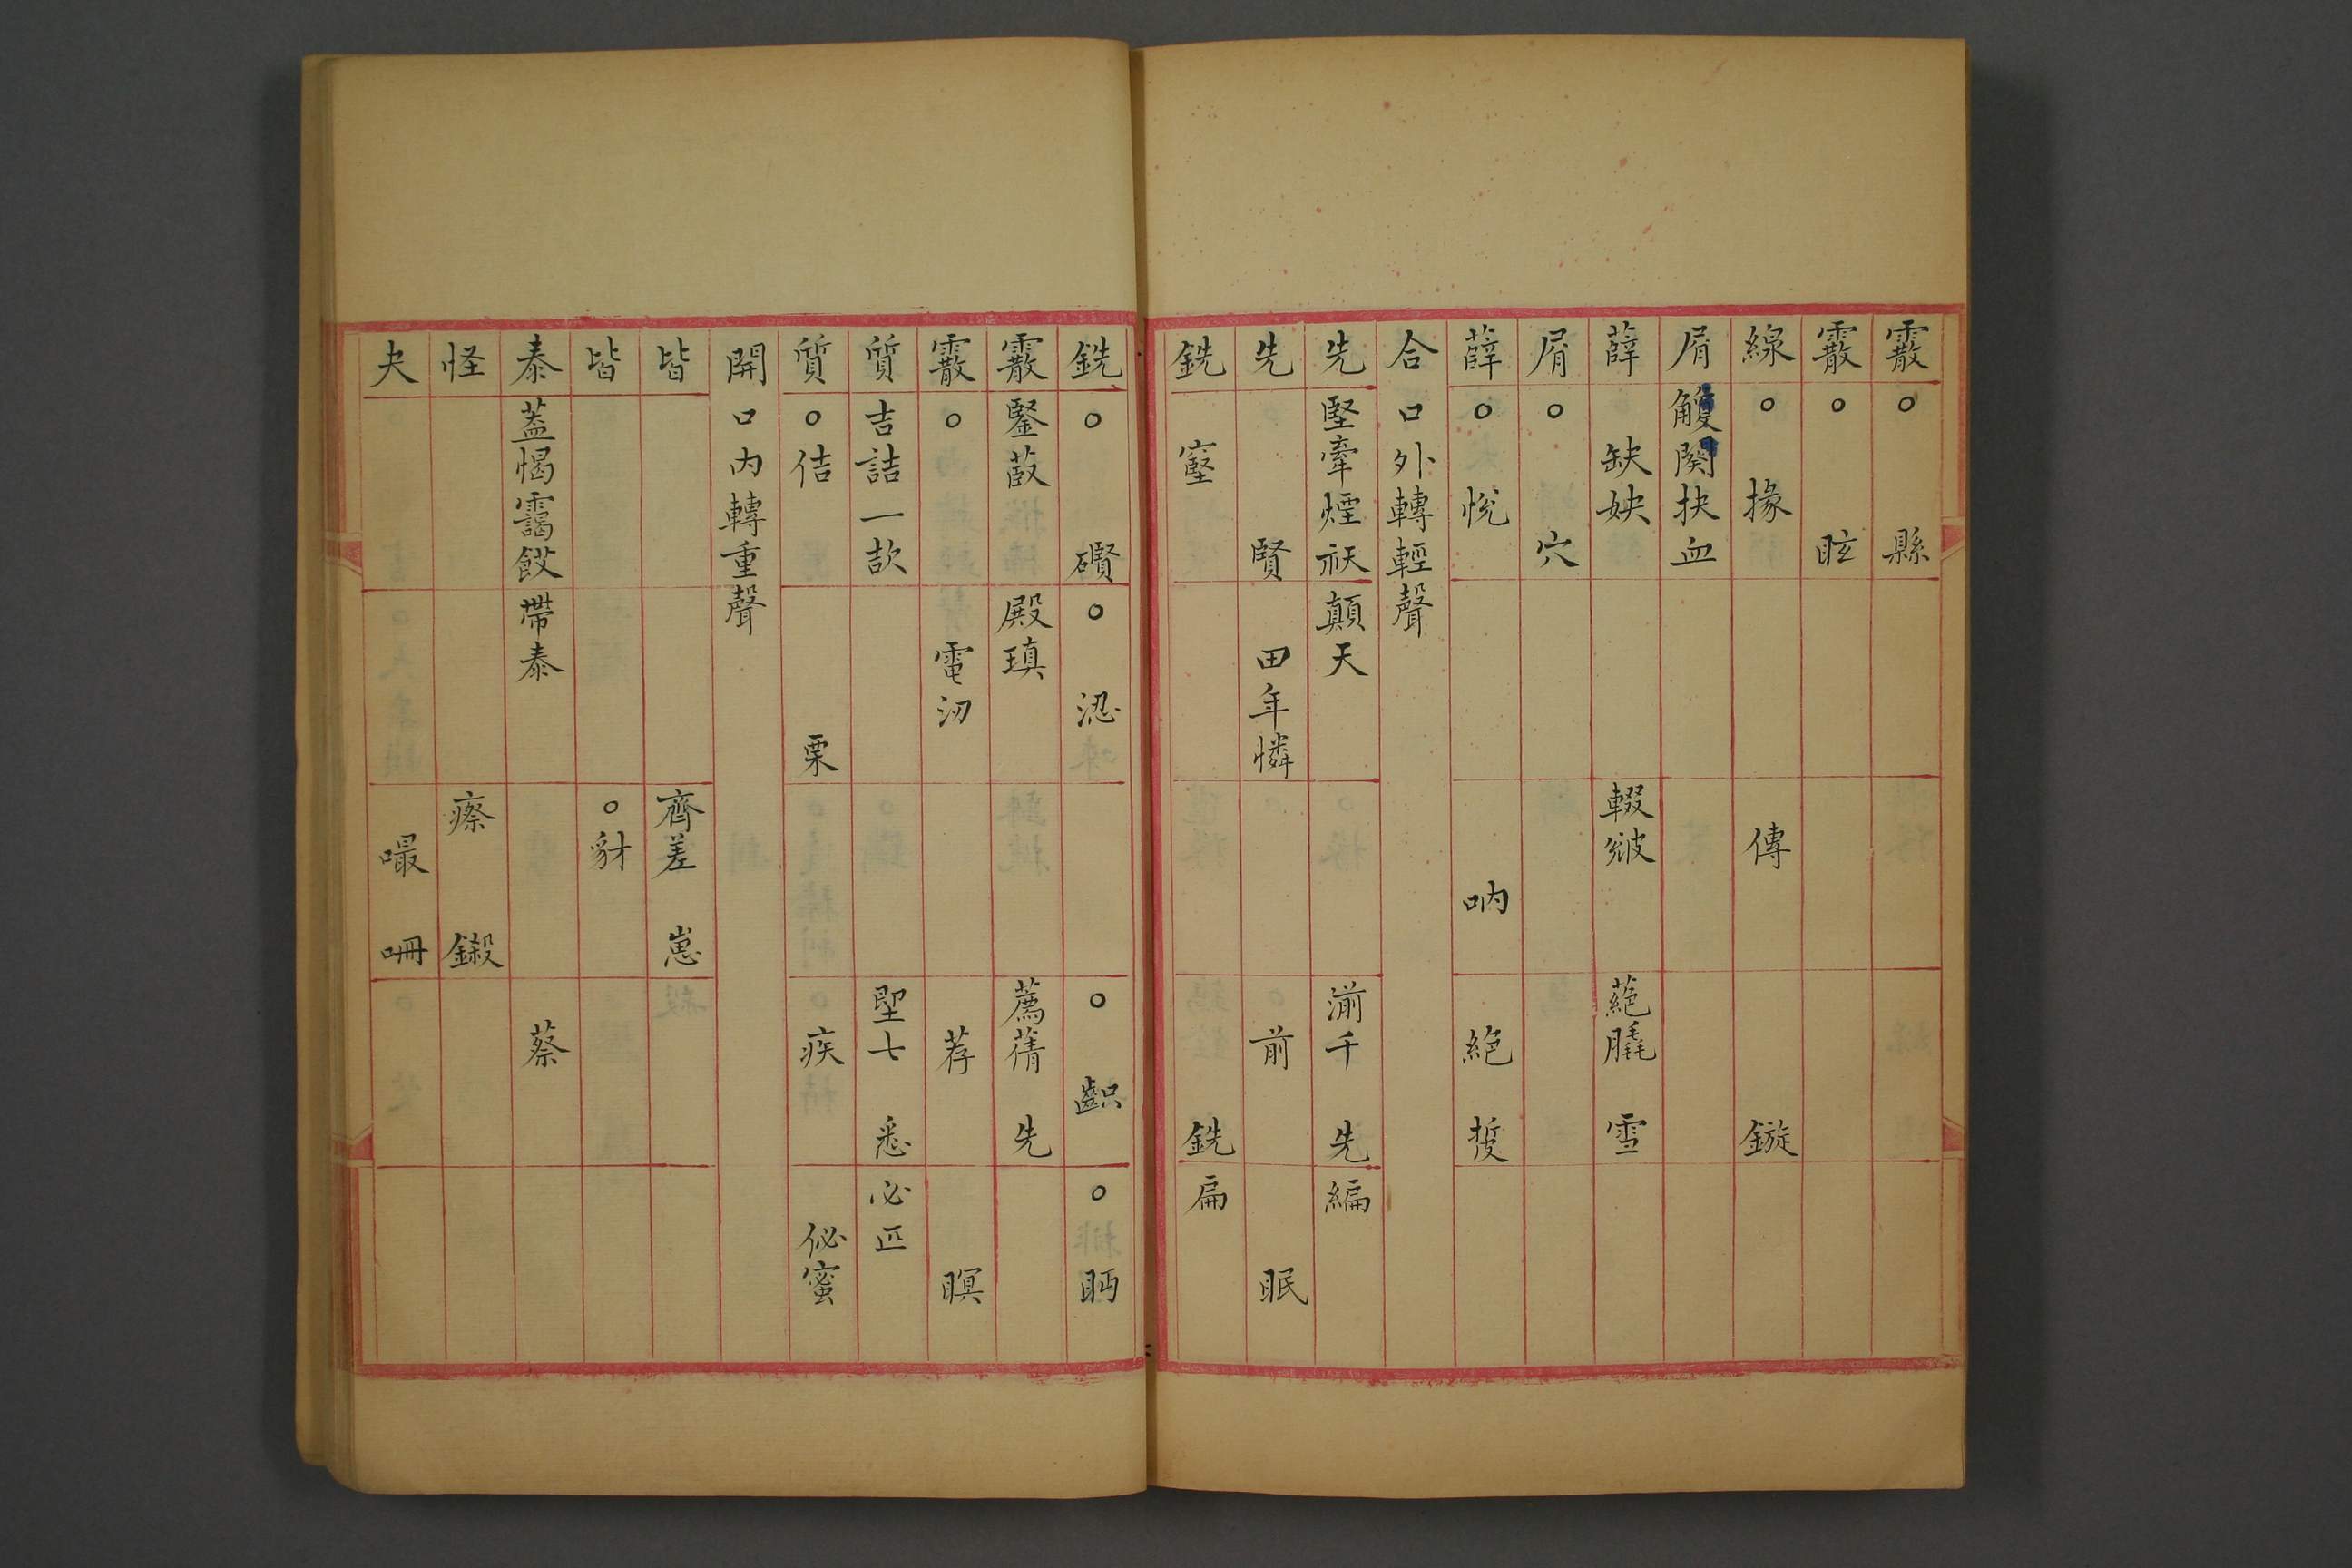 霰○縣
霰○眩
線○掾傳鏇
屑觼闋抉血
薛缺妜輟㓖蕝膬雪
屑○穴
薛○悅吶絕授
合口外轉輕聲
先堅牽煙祆顛天湔千先編
先賢田年憐前眠
銑窒銑扁
銑○礥○涊○齞○眄
霰鋻菣殿瑱薦蒨先
霰○電涊荐瞑
質吉詰一欯堲七悉必匹
質○佶栗疾佖蜜
開口內轉重聲
皆齊差崽
皆○豺
泰蓋愒靄餀帶泰蔡
怪瘵鎩
夬嘬㗲